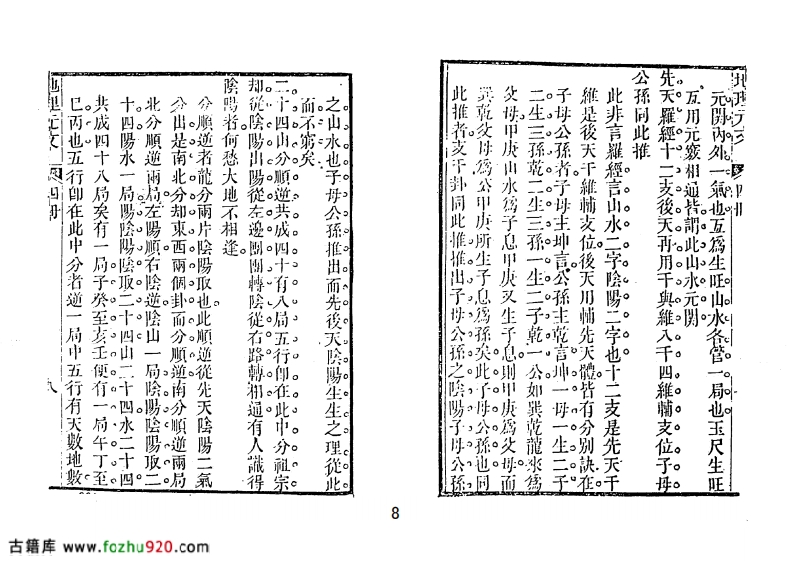 地理元文 卷四冊
元閑內外一氣也互爲生旺山水各管一局也玉尺生旺
互用元竅相通皆謂此山水元関
先天羅經十二支後天再用干與維八干四維輔支位子母
公孫同此推
此非言羅經言山水二字陰陽二字也十二支是先天干
維是後天干維輔支位後天用輔先天體皆有分別訣在
子母公孫者子母主坤言公孫主乾言坤一母一生二子
二生三孫乾二生三孫一生二子乾一公如巽乾龍來爲
父母甲庚山水爲子息甲庚又生子息則甲庚爲父母而
巽乾父母爲公甲庚所生子息爲孫矣此子母公孫也同
此推者支干卦同此推推出子母公孫之陰陽子母公孫
之山水也子母公孫推出而先後天陰陽生生之理從此
而不窮矣
二十四山分順逆共成四十有八局五行卽在此中分祖宗
却從陰陽出陽從左邊團團轉陰從右路轉相通有人識得
陰陽者何愁大地不相逢
分順逆者龍分兩片陰陽取也此順逆從先天陰陽二氣
分出是南北分却東西兩個卦而分順逆南分順逆兩局
北分順逆兩局左陽順右陰逆陰山一局陽陰陽陰取二
十四陽水一局陽陰陽陰取二十四山二十四水二十四
共成四十八局矣有一局子癸至亥壬便有一局午丁至
巳丙也五行卽在此中分者逆一局中五行有天數地數
地理元文 卷四冊
九
8
古籍库 www.fozhu920.com